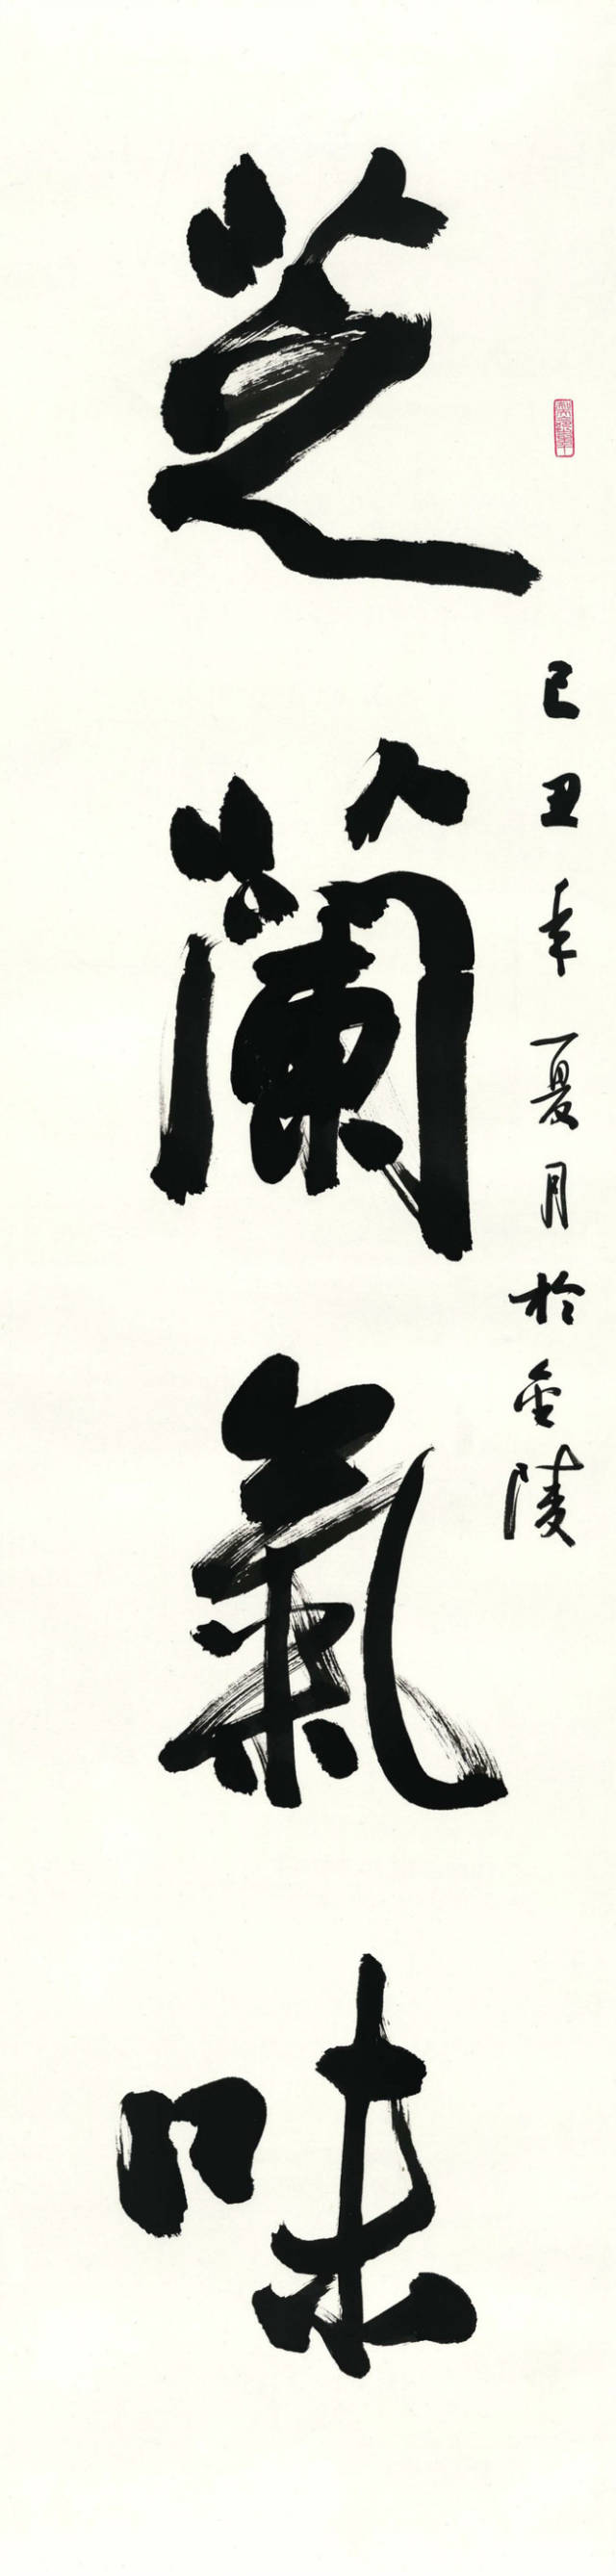 己丑年夏月於金陵
芝蘭氣味